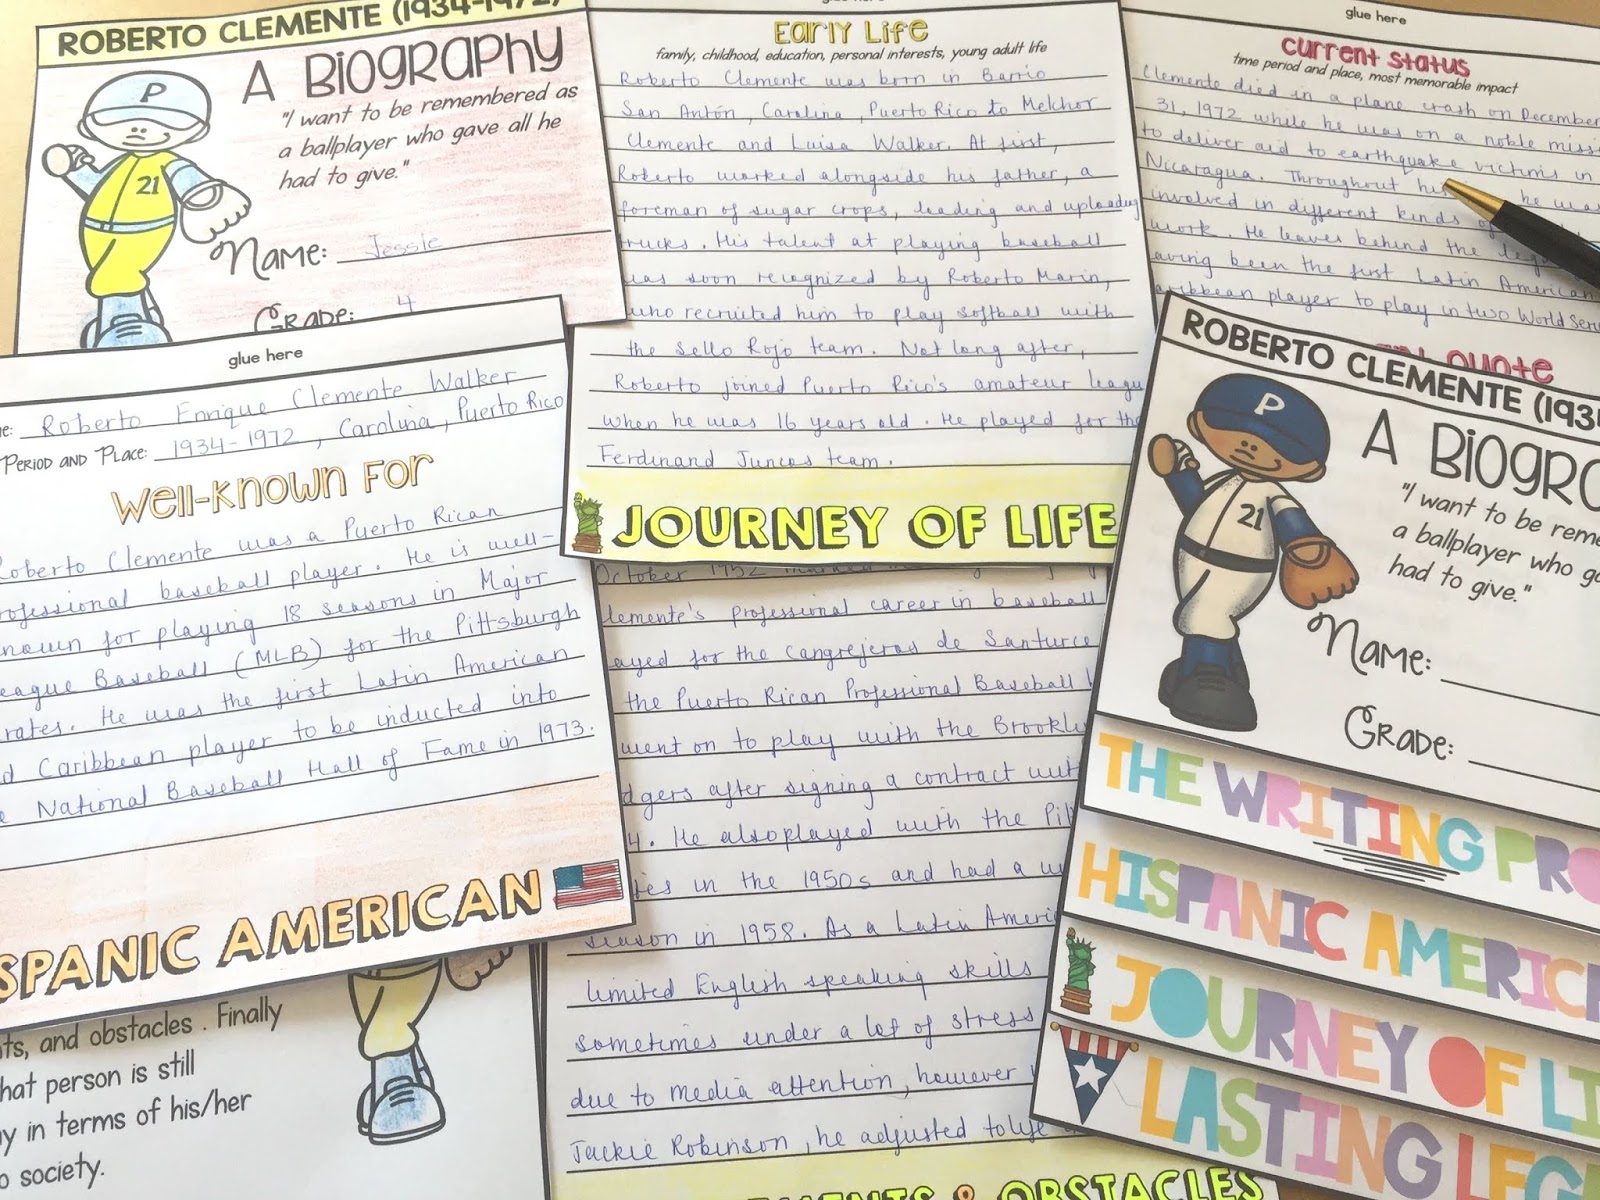 ROBERTO CLEMENTE (1934-1972)
A Biography
"I want to be remembered as
a ballplayer who gave all he
had to give."
P
21
Name: Jessie
Grade: 4
glue here
Roberto Enrique Clemente Walker
Period and Place: 1934-1972, Carolina, Puerto Rico
Well-Known For
Roberto Clemente was a Puerto Rican
professional baseball player. He is well-
known for playing 18 seasons in Major
League Baseball (MLB) for the Pittsburgh
Pirates. He was the first Latin American
and Caribbean player to be inducted into
National Baseball Hall of Fame in 1973.
HISPANIC AMERICAN
and obstacles. Finally
that person is still
in terms of his/her
society.
glue here
Early Life
family, childhood, education, personal interests, young adult life
Roberto Clemente was born in Barrio
San Antón, Carolina, Puerto Rico to Melchor
Clemente and Luisa Walker. At first,
Roberto worked alongside his father, a
foreman of sugar crops, loading and uploading
trucks. His talent at playing baseball
was soon recognized by Roberto Marin,
who recruited him to play softball with
the Sello Rojo team. Not long after,
Roberto joined Puerto Rico's amateur league
when he was 16 years old. He played for the
Ferdinand Juncos team.
JOURNEY OF LIFE
October 1952 marked
Clemente's professional career in baseball
played for the Cangrejeros de Santurce
the Puerto Rican Professional Baseball
went on to play with the Brooklyn
Dodgers after signing a contract with
4. He also played with the
in the 1950s and had a
season in 1958. As a Latin American
limited English speaking skills
sometimes under a lot of stress
due to media attention, however
Jackie Robinson, he adjusted to life
& OBSTACLES
glue here
Current Status
time period and place, most memorable impact
Clemente died in a plane crash on December
31, 1972 while he was on a noble mission
to deliver aid to earthquake victims in
Nicaragua. Throughout his he was
involved in different kinds of
work. He leaves behind the legacy
having been the first Latin American
Caribbean player to play in two World Series
Quote
ROBERTO CLEMENTE (193
A Biogra
"I want to be reme
a ballplayer who ga
had to give."
P
21
Name:
Grade:
THE WRITING PRO
HISPANIC AMERIC
JOURNEY OF LI
LASTING LEG